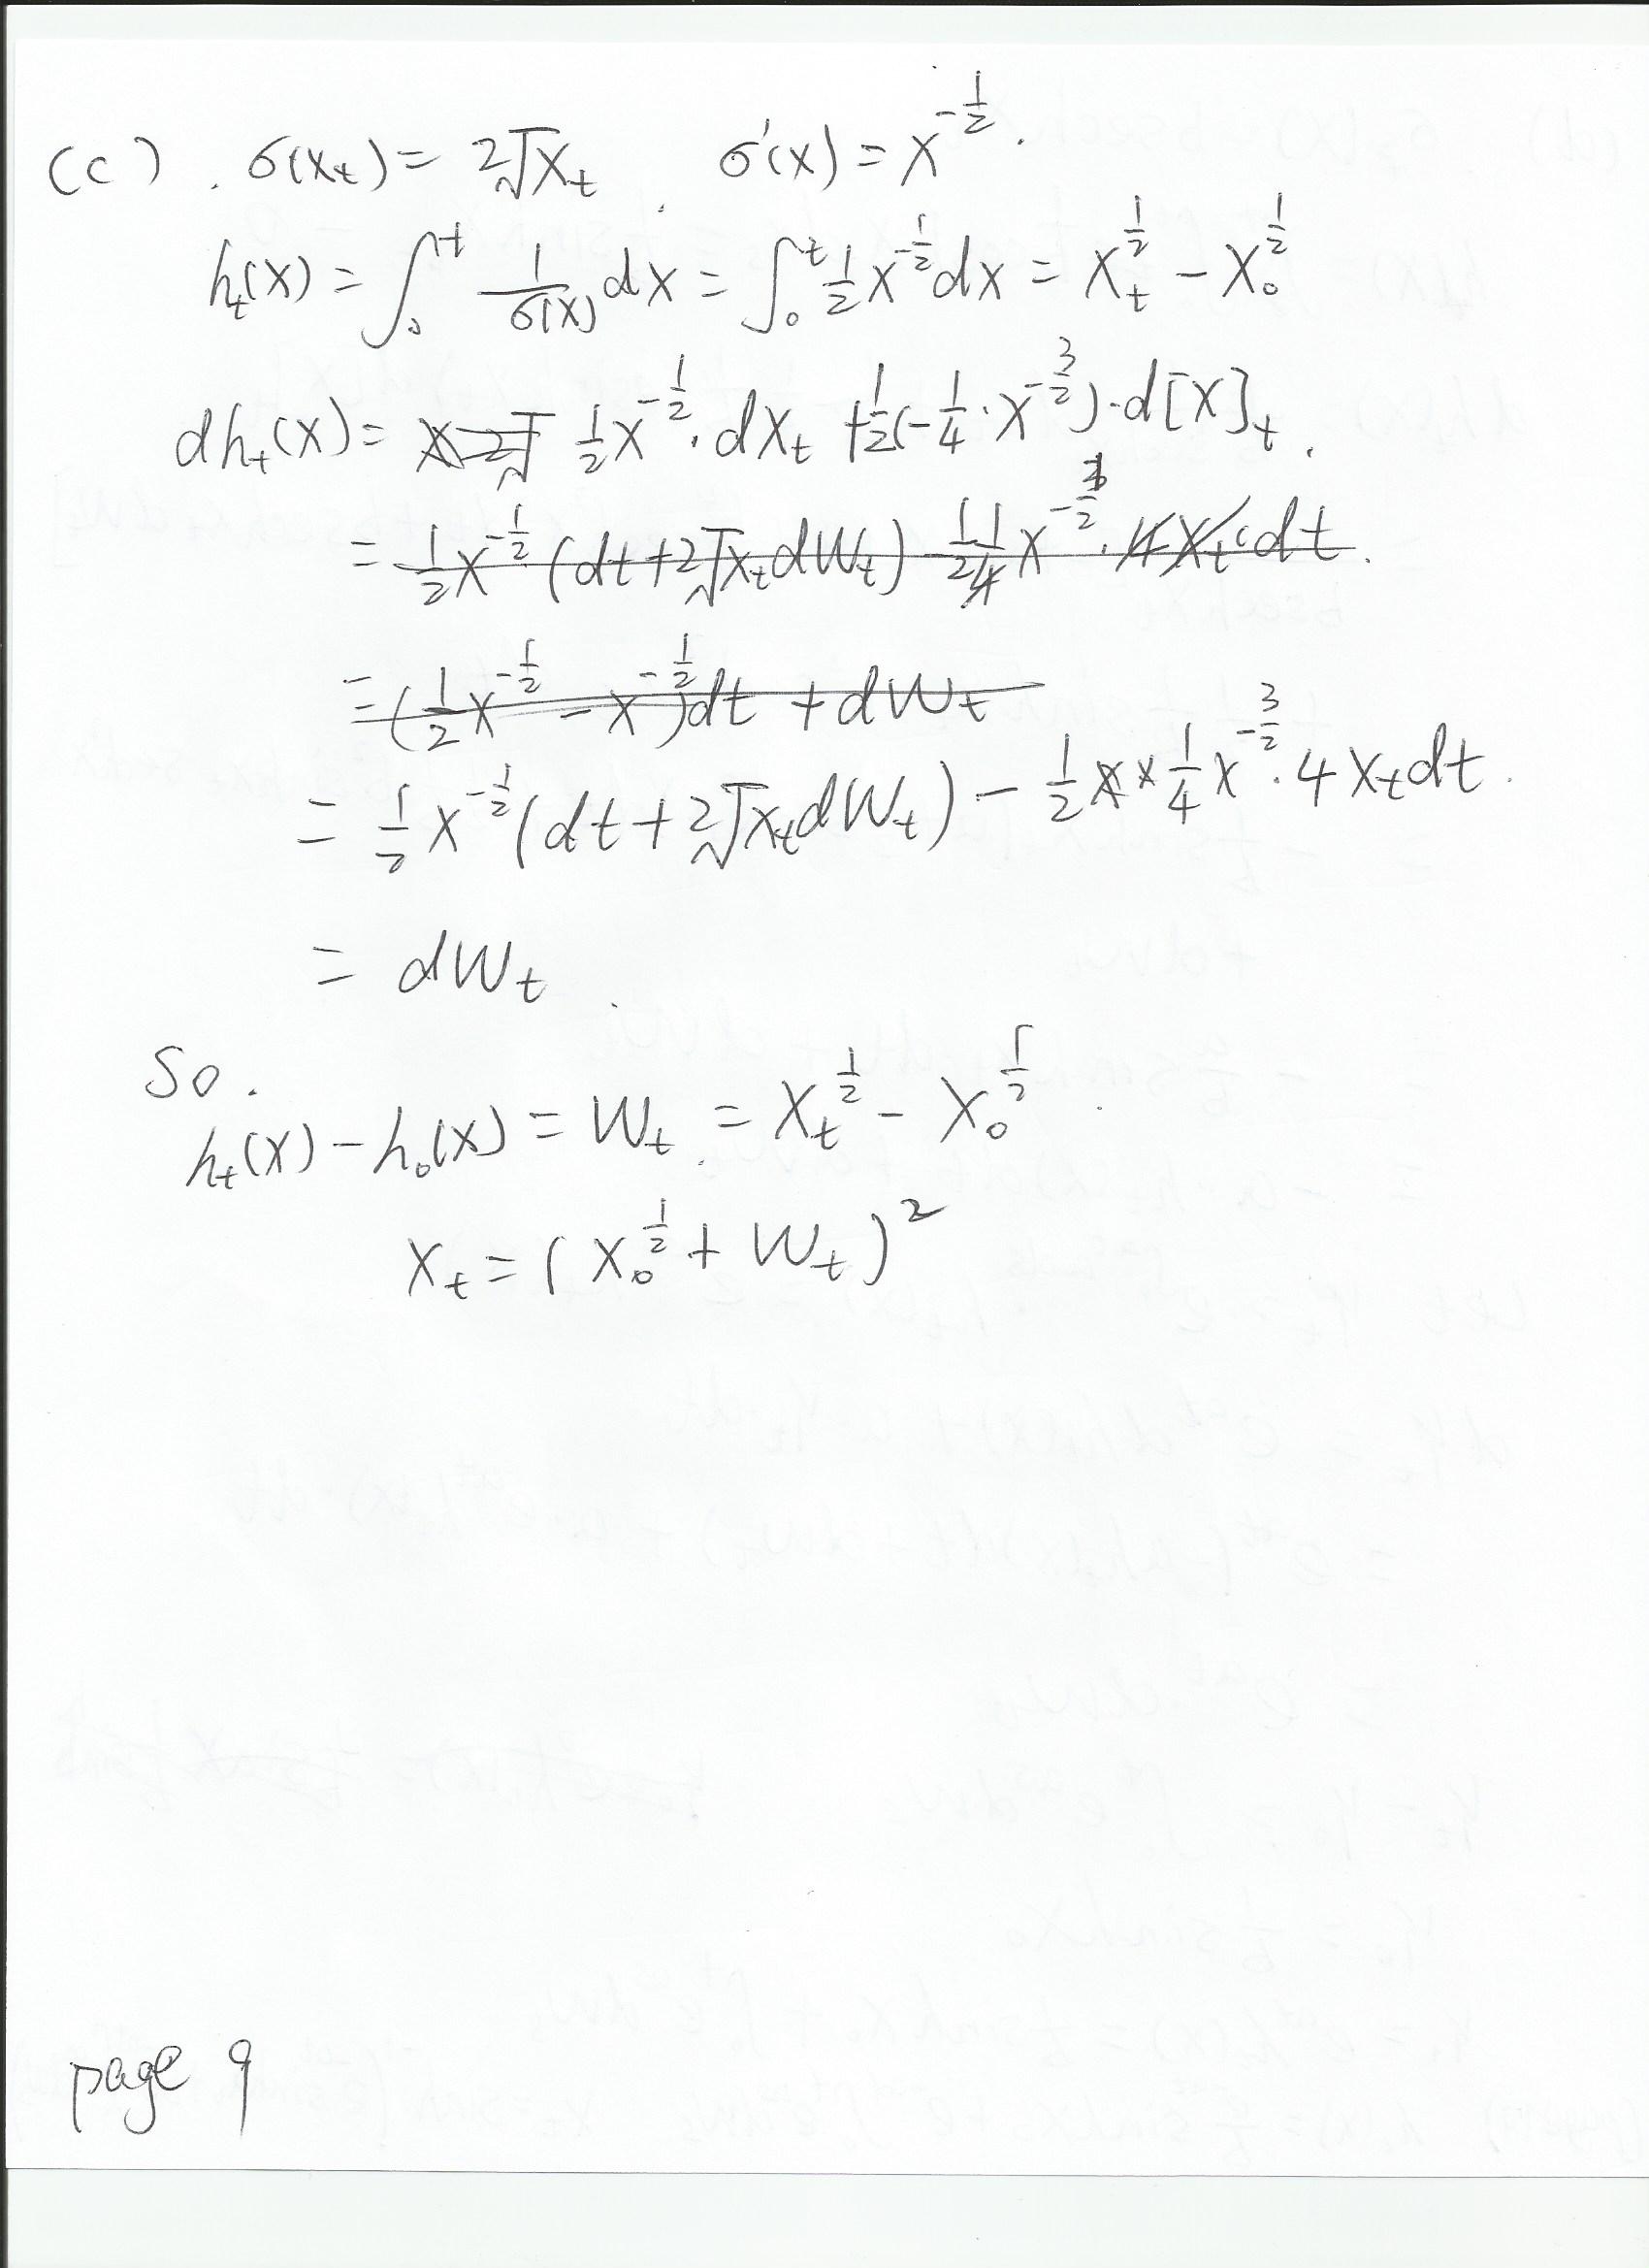 (c). σ(Xₜ) = 2√Xₜ. σ'(x) = x^{-1/2}.
hₜ(x) = ∫₀ᵗ 1/σ(x) dx = ∫₀ᵗ ½ x^{-1/2} dx = Xₜ^{1/2} - X₀^{1/2}
dhₜ(x) = ½ x^{-1/2}. dXₜ + ½(-¼·x^{-3/2})·d[X]ₜ.
= ½ x^{-1/2} (dt + 2√Xₜ dWₜ) - ½ ¼ x^{-3/2}. 4Xₜ dt.
= (½ x^{-1/2} - x^{-1/2}) dt + dWₜ
= ½ x^{-1/2} (dt + 2√Xₜ dWₜ) - ½ × ¼ x^{-3/2}. 4Xₜ dt.
= dWₜ.
So.
hₜ(x) - h₀(x) = Wₜ. = Xₜ^{1/2} - X₀^{1/2}.
Xₜ = (X₀^{1/2} + Wₜ)²
page 9